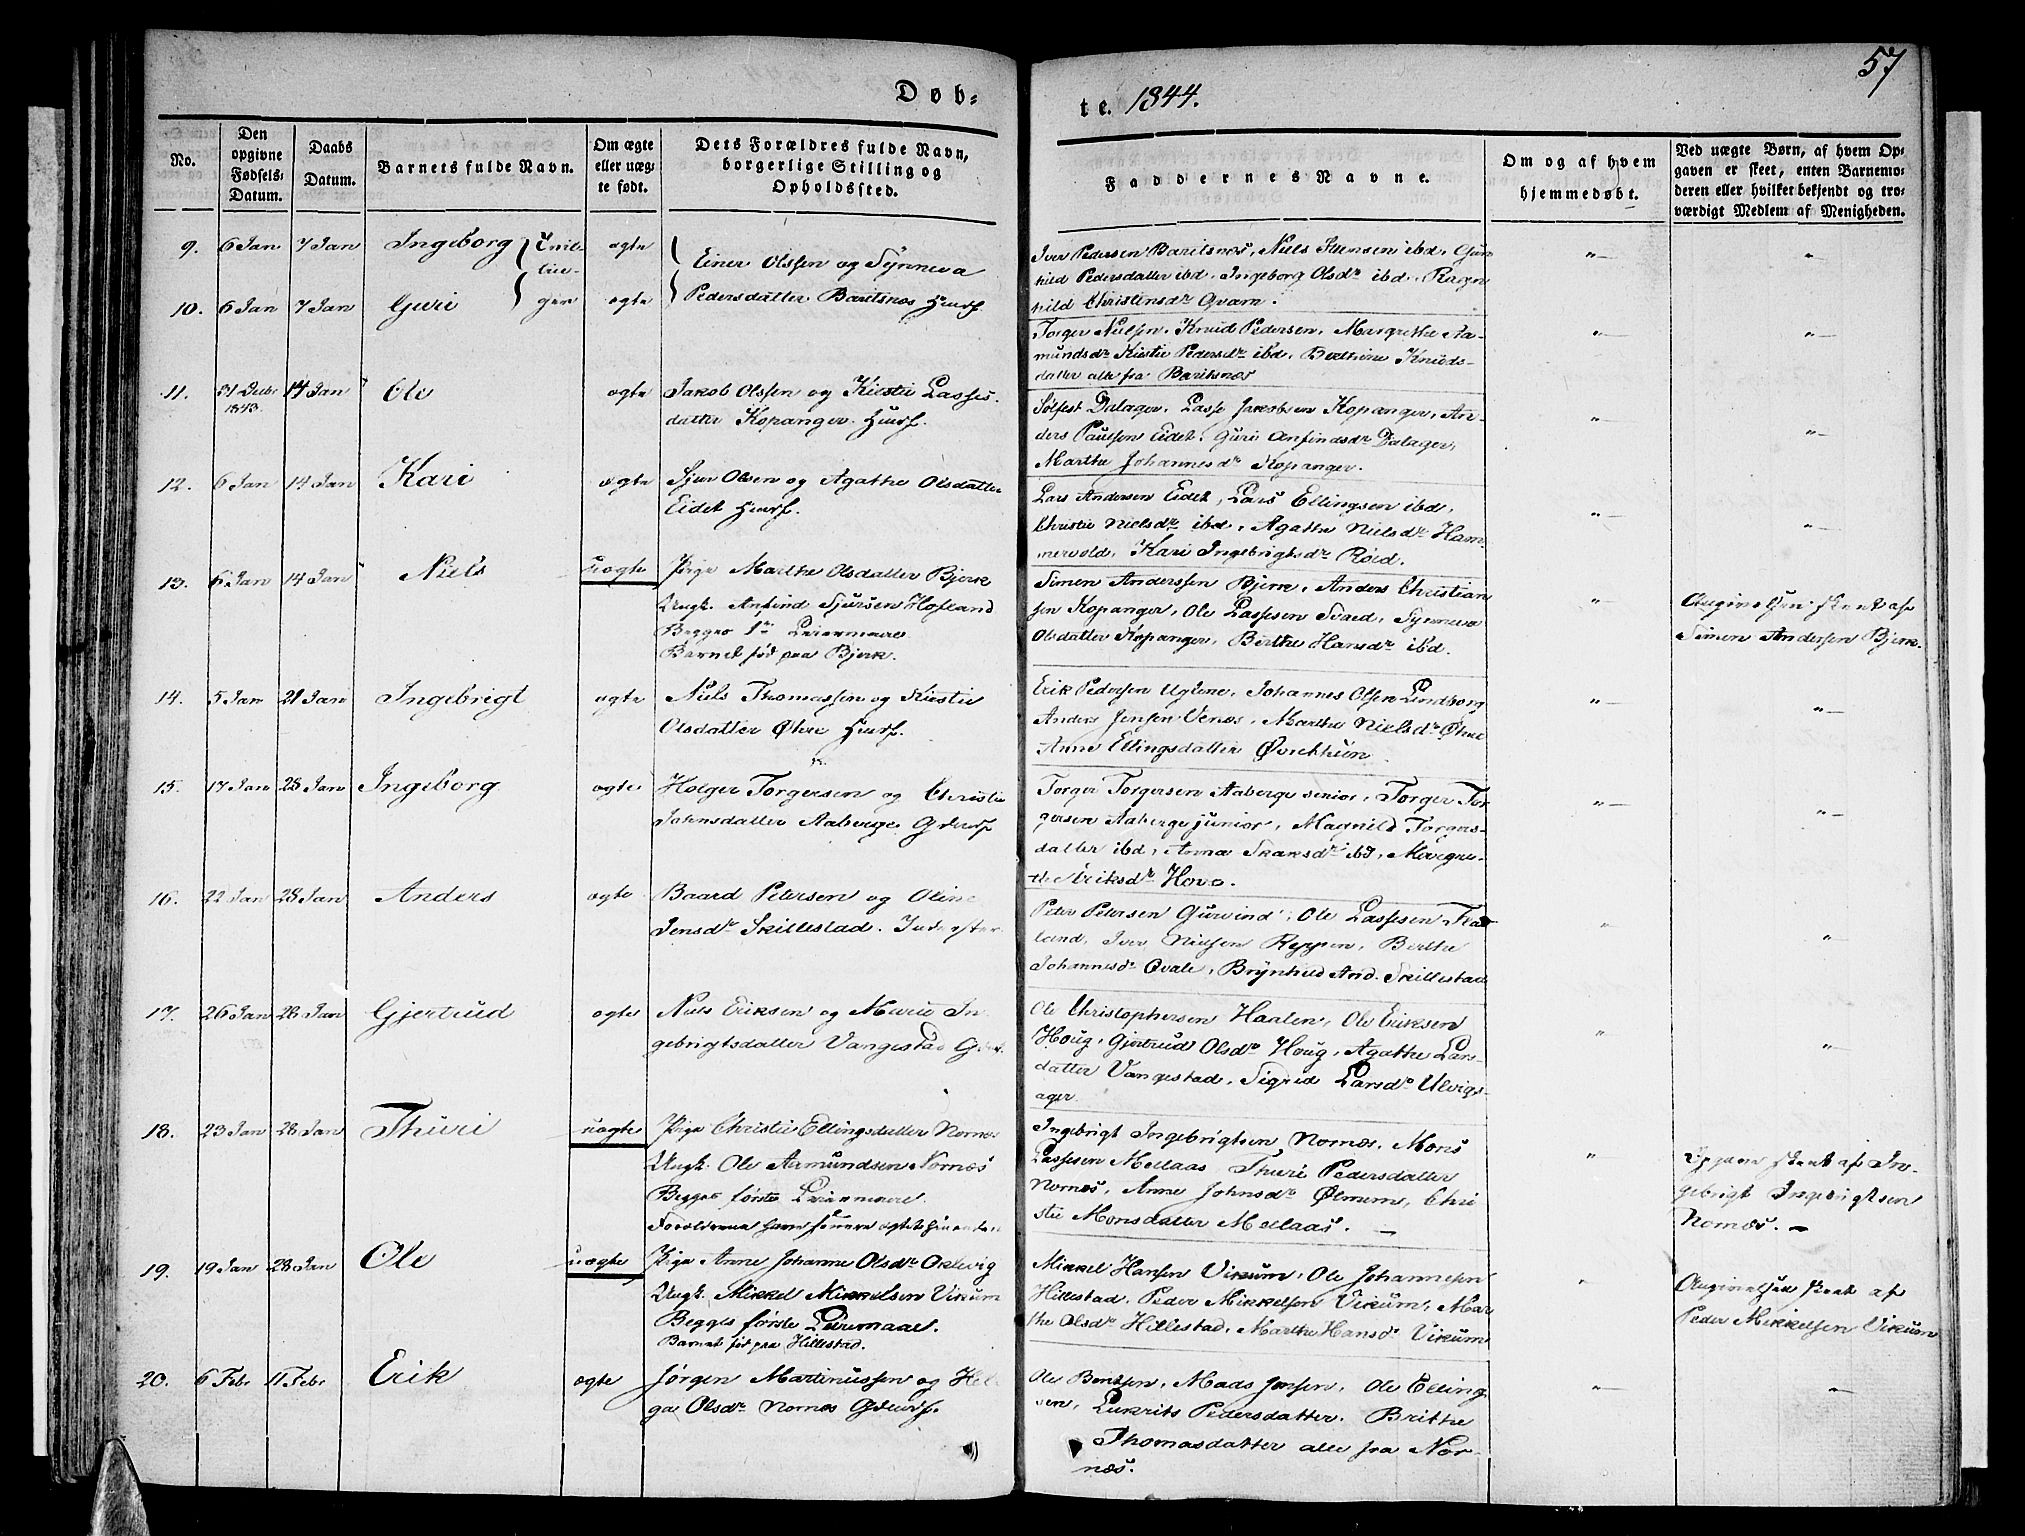 57
Døb-
te. 1844.
No.
Den opgivne Fødsels-Datum.
Daabs Datum.
Barnets fulde Navn.
Om ægte eller uægte født.
Dets Forældres fulde Navn, borgerlige Stilling og Opholdssted.
Faddernes Navne.
Om og af hvem hjemmedøbt.
Ved uægte Børn, af hvem Opgaven er skeet, enten Barnemoderen eller hvilket bekjendt og troværdigt Medlem af Menigheden.
9. 6 Jan 7 Jan Ingeborg ægte
10. 6 Jan 7 Jan Guri ægte
Einer Olssen og Synneva
Pedersdatter Baritsnæs Husf.
Iver Pedersen Baritsnæs, Niels Iversen ibd, Gun
hild Pedersdatter ibd, Ingeborg Olsdr ibd, Ragn
hild Christensdr Qvam.
Torger Nielsen, Knud Pedersen, Margrethe Aa-
mundsdr Kirstie Pedersdr ibd, Berthine Knuds-
datter alle fra Baritsnæs
11. 31 Debr 1843. 14 Jan Ole ægte
Jakob Olssen og Kirstie Lasses-
datter Kopanger Husf.
Solfest Dalager, Lasse Jakobsen Kopanger, An
ders Paulsen Eidet, Guri Anfindsdr Dalager,
Marthe Johannesdr Kopanger.
12. 6 Jan 14 Jan Kari ægte
Sjur Olsen og Agathe Olsdatter
Eidet Husf.
Lars Andersen Eidet, Lars Ellingsen ibd,
Christie Nielsdr ibd, Agathe Nielsdr Ham
mervold, Kari Ingebrigtsdr Røid.
13. 6 Jan 14 Jan Niels uægte
Pige Marthe Olsdatter Bjerk
Ungk. Anfind Sjursen Hofland
Begges 1ste Leiermaal
Barnet fød paa Bjerk.
Simen Anderssen Bjerk, Anders Christian
sen Kopanger, Ole Lassesen, Synneva
Olsdatter Kopanger, Berthe Hansdr ibd.
Angivelsen skeet af
Simen Andersen Bjerk.
14. 5 Jan 21 Jan Ingebrigt ægte
Niels Thomassen og Kirstie
Olsdatter Øhre Husf.
Erik Pedersen Uglene, Johannes Olsen Lindborg
Anders Jensen Venæs, Marthe Nielsdr Øhre
Anne Ellingsdatter
15. 17 Jan 28 Jan Ingeborg ægte
Holger Torgersen og Christie
Johnsdatter Aaberge Gbrf
Torger Torgersen Aaberge senior, Torger Tor
gersen Aaberge junior, Magnild Torgers-
datter ibd, Anna ibd, Margre-
the Eriksdr Hove.
16. 22 Jan 28 Jan Anders ægte
Baard Petersen og Oline
Jensdr Skillestad. Inderster
Peter Petersen Gurvind, Ole Lassesen
land, Iver Nielsen, Berthe
Johannesdr Qvale, Brynhild And. Skillestad
17. 26 Jan 28 Jan Gjertrud ægte
Niels Eriksen og Marie In
gebrigtsdatter Vangestad
Ole Christophersen Haalen, Ole Eriksen
Houg, Gjertrud Olsdr Houg, Agathe Lars-
datter Vangestad, Sigrid Larsdr Ulvigs-
ager
18. 23 Jan 28 Jan Thuri uægte
Pige Christie Ellingsdatter Nornæs
Ungk. Ole Aamundsen Nornæs
Begges første Leiermaal
Ingebrigt Ingebrigtsen Nornæs, Mons
Lassesen Mellaas, Thuri Pedersdatter
Nornæs, Anne Johnsdr Ølmem, Chri
stie Monsdatter Mellaas.
skeet af In-
gebrigt Ingebrigtsen
Nornæs.
19. 19 Jan 28 Jan Ole uægte
Pige Anne Johanne Olsdr
Ungk. Mikkel Mikkelsen Vikum
Begges første Leiermaal.
Barnet fød paa Hillestad.
Mikkel Hansen Vikum, Ole Johannesen
Hillestad, Peder Mikkelsen Vikum, Mar
the Olsdr Hillestad, Marthe Hansdr Vikum
Angivelsen skeet af
Peder Mikkelsen Vikum
20. 6 Febr 11 Febr Erik ægte
Jørgen Martinussen og Hel
ga Olsdr Nornæs Gbrf.
Ole Bentsen, Mads Jensen, Ole Elling
sen, Lukrits Pedersdatter, Brithe
Thomasdatter alle fra Nor-
næs.